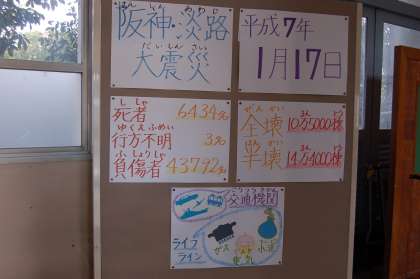 はんしん あわじ
阪神・淡路
だいしんさい
大震災
平成7年
1月17日
ししゃ
死者 6434名
ゆくえふめい
行方不明 3名
ふしょうしゃ
負傷者 43792名
ぜんかい
全壊 10万5000棟
半壊 14万4000棟
こうつうきかん
交通機関
ライフ
ライン
ガス
電気
水道